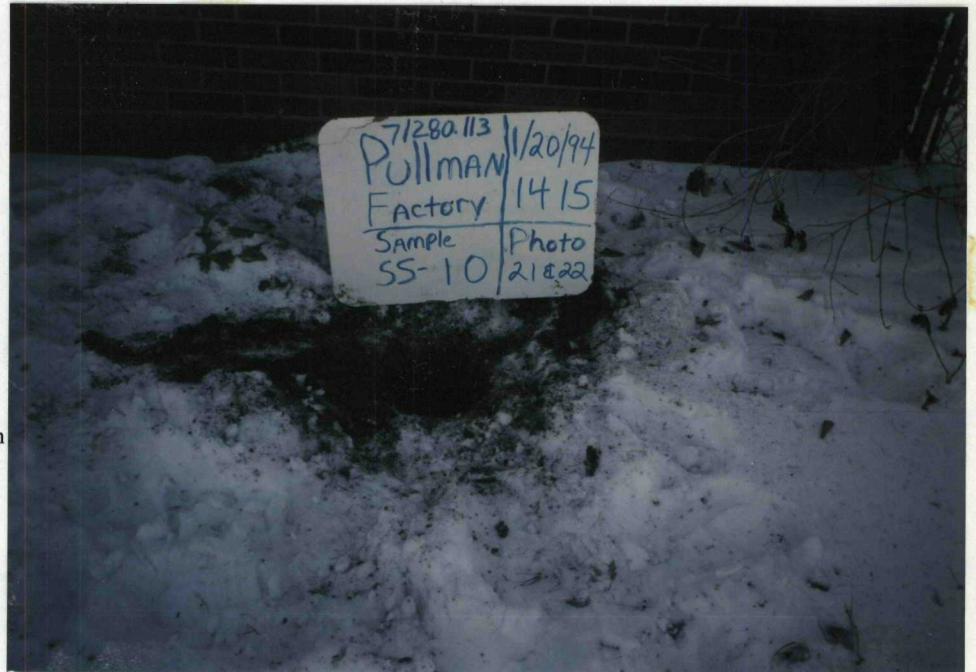 71280.113
Pullman
Factory
1/20/94
1415
Sample
SS-10
Photo
21 & 22